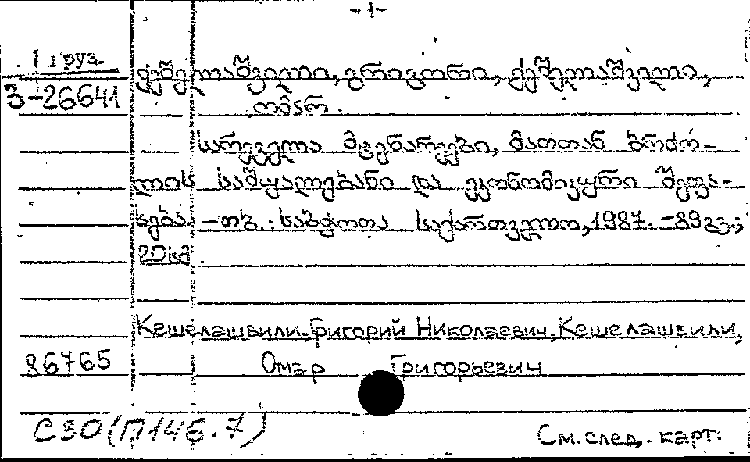 -1-
1 груз.
ქეშელაშვილი, გრიგორი, ქეშელაშვილი,
З-26641
ომარ.
სარეველა მცენარეები, მათთან ბრძო-
ლის საშუალებანი და ეკონომიკური შეფა-
სება. – თბ.: საბჭოთა საქართველო, 1987. – 89 გვ.;
20 სმ
Кешелашвили Григорий Николаевич, Кешелашвили,
86765 Омар Григорьевич
С30(П146.7)
См. след. карт.